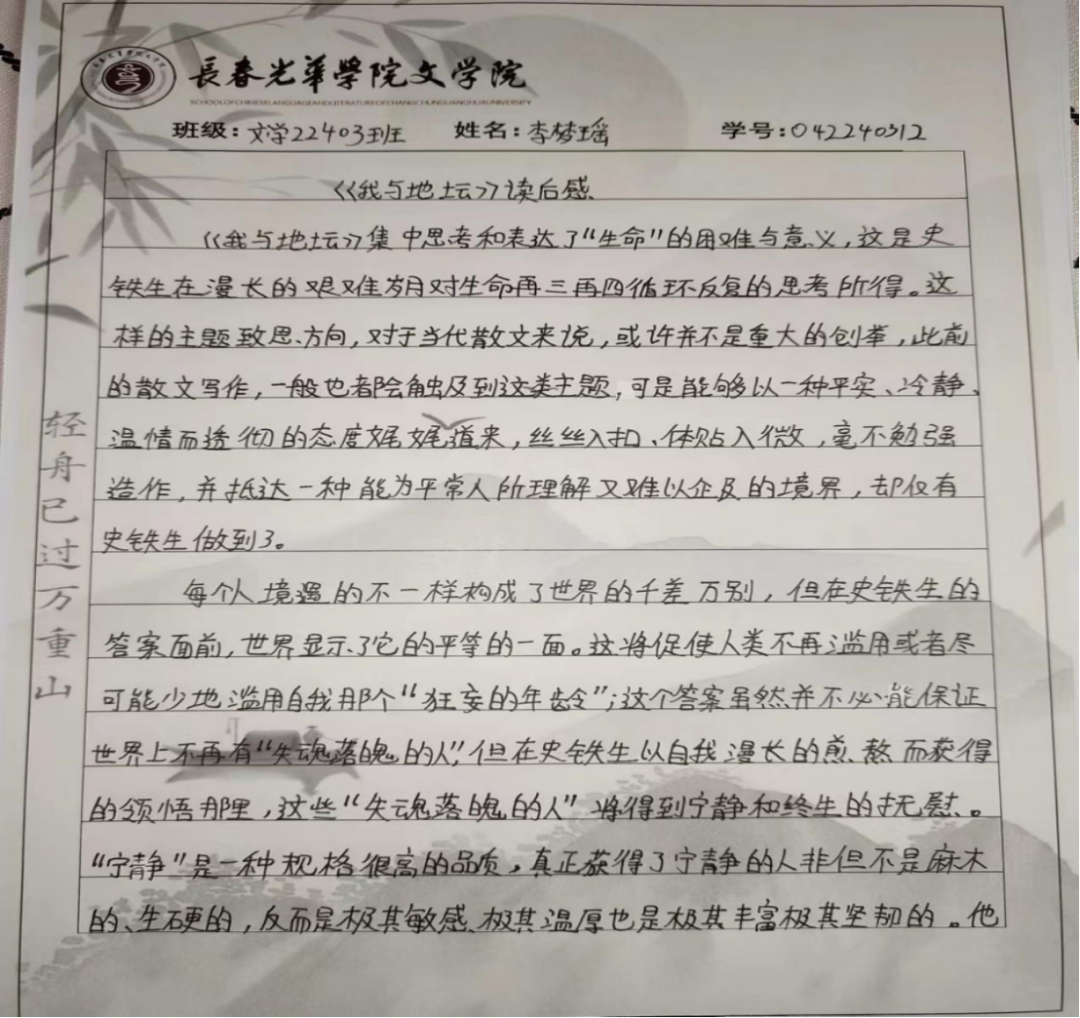 長春光華學院文学院
SCHOOL OF CHINESE LANGUAGE AND LITERATURE OF CHANGCHUN GUANGHUA UNIVERSITY
班级：文学22403班 姓名：李梦瑶 学号：042240312
《我与地坛》读后感
《我与地坛》集中思考和表达了“生命”的困难与意义，这是史
铁生在漫长的艰难岁月对生命再三再四循环反复的思考所得。这
样的主题致思方向，对于当代散文来说，或许并不是重大的创举，此前
的散文写作，一般也都会触及到这类主题，可是能够以一种平实、冷静、
温情而透彻的态度娓娓道来，丝丝入扣、体贴入微，毫不勉强
造作，并抵达一种能为平常人所理解又难以企及的境界，却仅有
史铁生做到了。
每个人境遇的不一样构成了世界的千差万别，但在史铁生的
答案面前，世界显示了它的平等的一面。这将促使人类不再滥用或者尽
可能少地滥用自我那个“狂妄的年龄”；这个答案虽然并不必能保证
世界上不再有“失魂落魄的人”，但在史铁生以自我漫长的煎熬而获得
的领悟那里，这些“失魂落魄的人”将得到宁静和终生的抚慰。
“宁静”是一种规格很高的品质，真正获得了宁静的人非但不是麻木
的、生硬的，反而是极其敏感、极其温厚也是极其丰富极其坚韧的。他
轻舟已过万重山